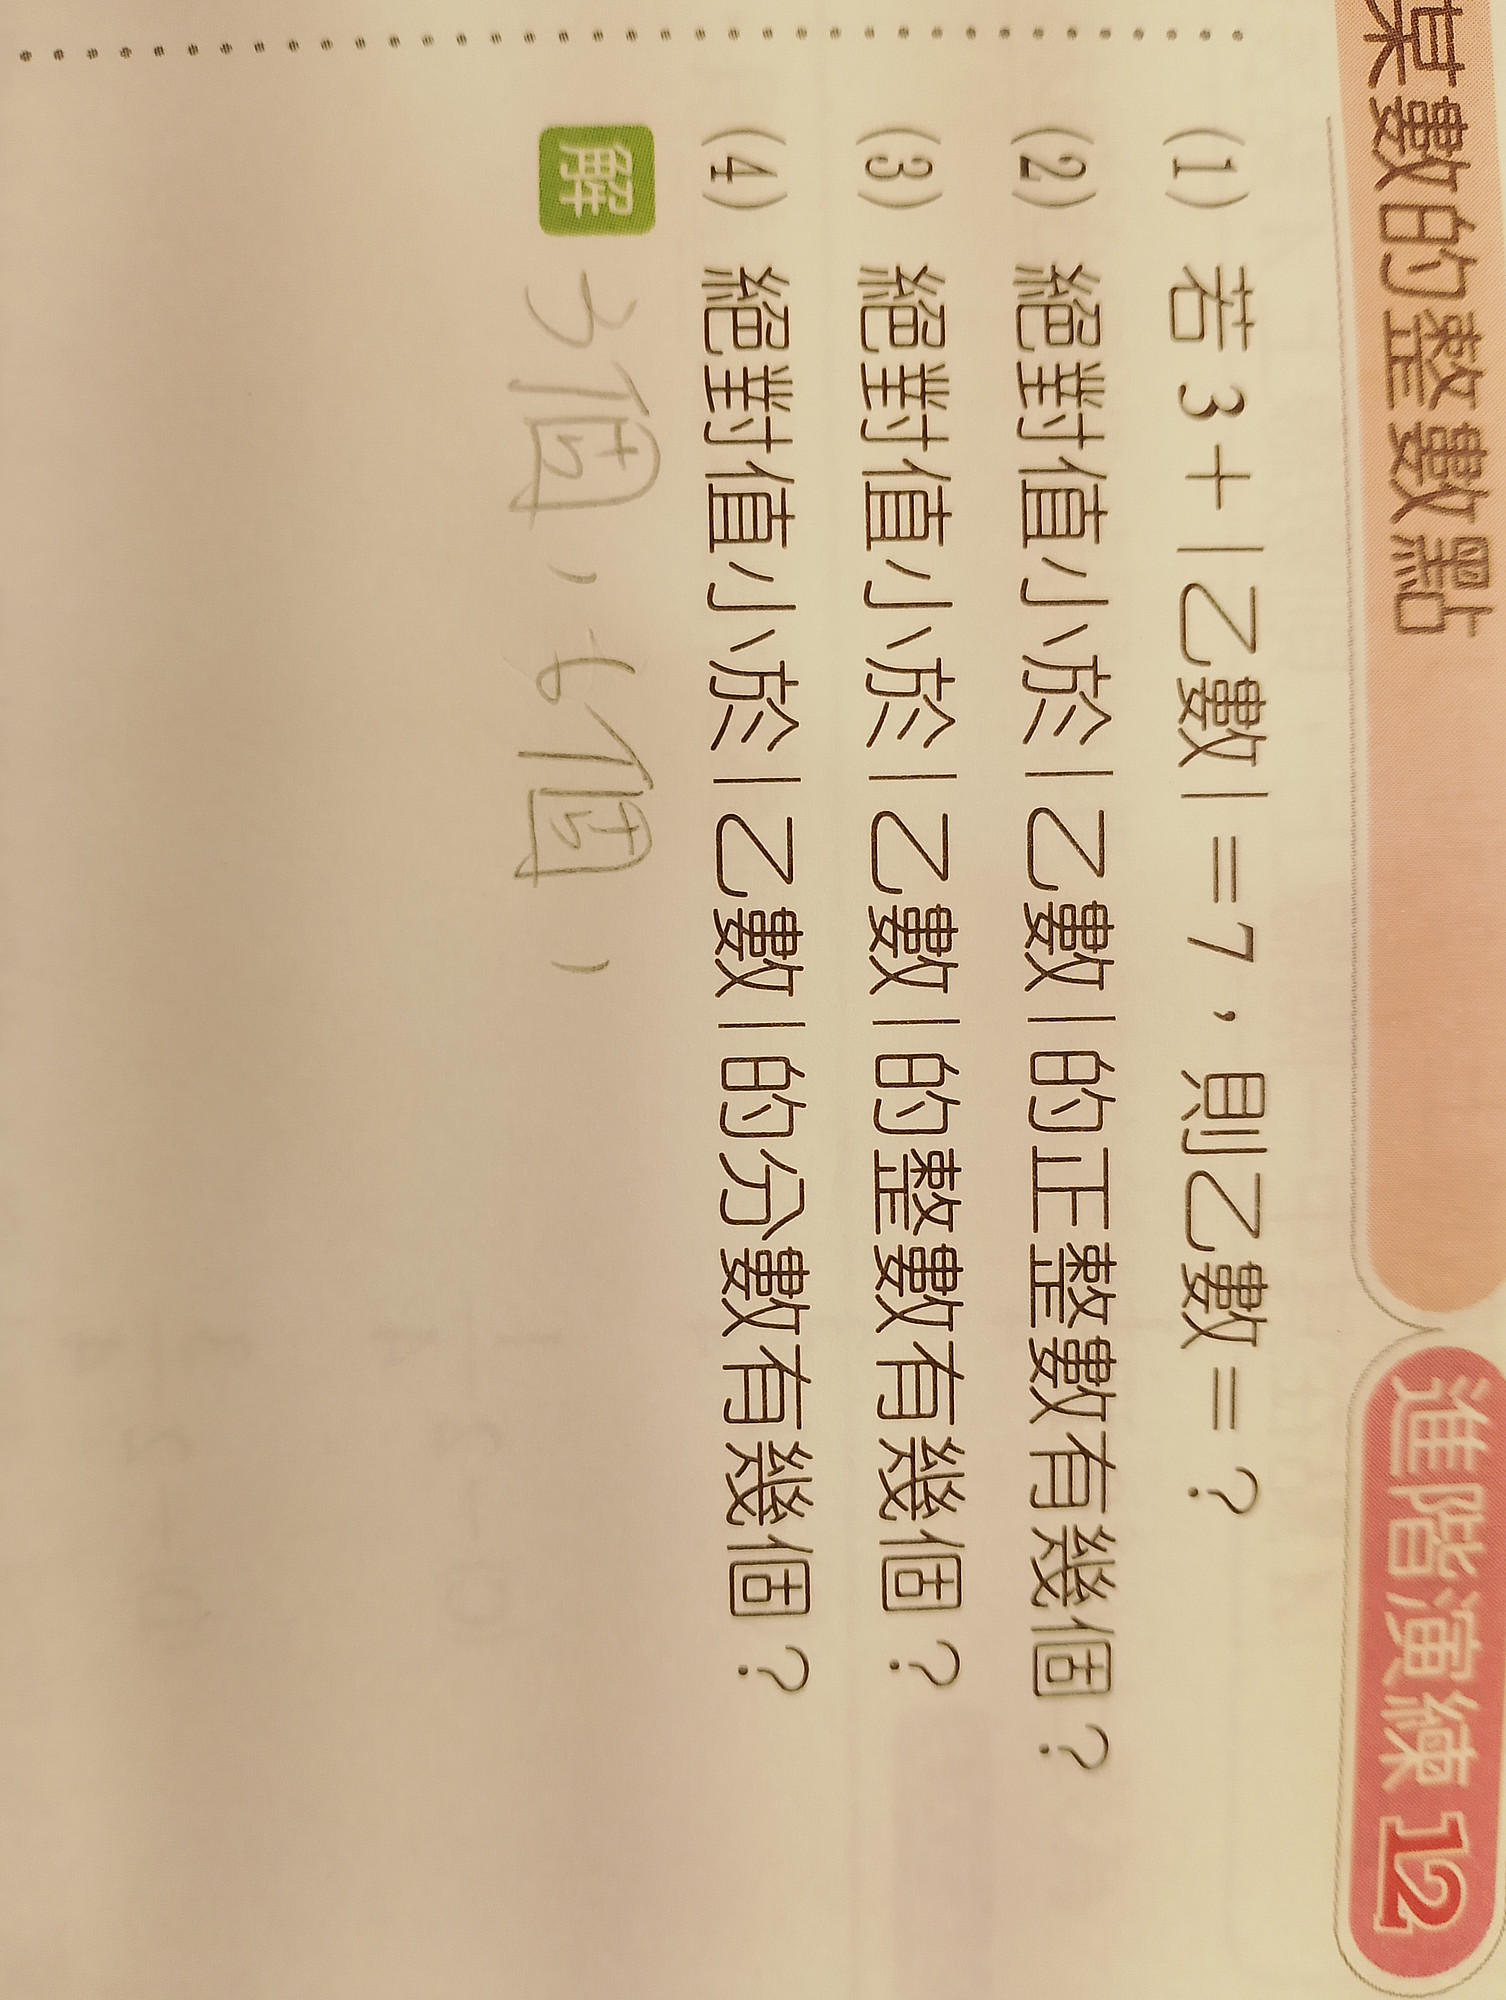 某數的整數點
進階演練 12
(1) 若 3+|乙數|=7，則乙數=？
(2) 絕對值小於|乙數|的正整數有幾個？
(3) 絕對值小於|乙數|的整數有幾個？
(4) 絕對值小於|乙數|的分數有幾個？
解 3個，七個，